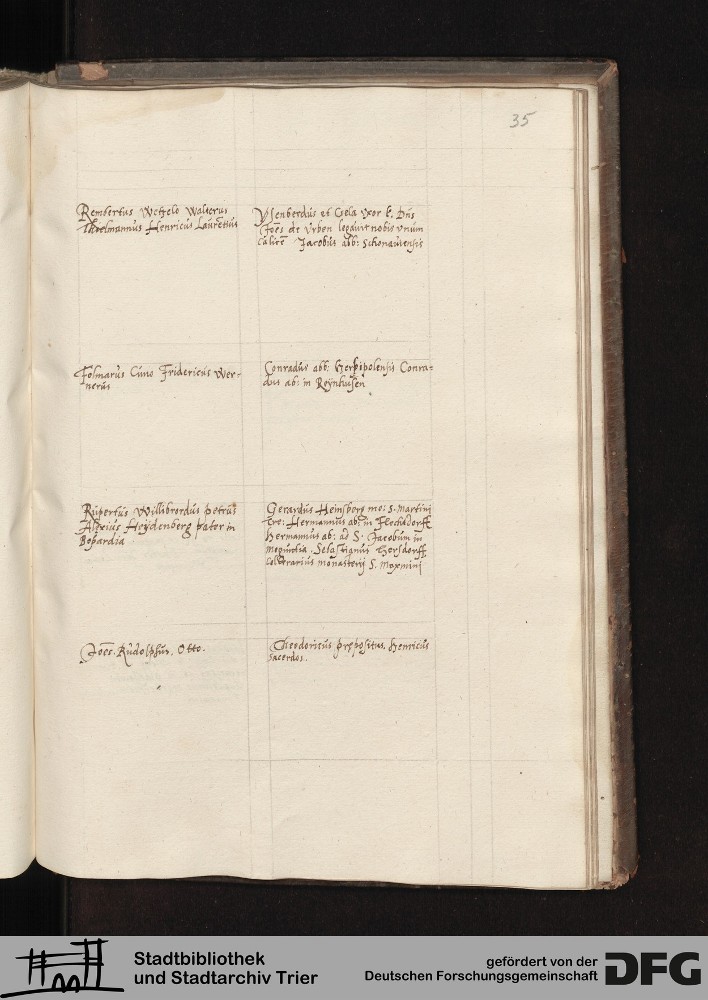 35
Rembertus Wetzelo Walterus
Thoelmannus Henricus Laurettius
Ysenberdus et Gela vxor ei. Dns
Joes de Vrben legauit nobis vnum
calice Jacobus abb: Schonauiensis
Folmarus Cuno Fridericus Wer-
nerus
Conradus abb: herbipolensis Conra-
dus ab: in Reynhusen
Rupertus Willibrordus petrus
Alexius Heydenberg pater in
Bopardia
Gerardus Heinsberg mo: S. Martini
Tre: Hermannus ab: in Flechdorff
Hermannus ab: ad S. Jacobum in
Moguntia. Sebastianus Hersdorff
cellerarius monasterij S. Maximini
Joes. Rudolphus. Otto.
Theodoricus prepositus, henricus
sacerdos.
Stadtbibliothek
und Stadtarchiv Trier
gefördert von der
Deutschen Forschungsgemeinschaft
DFG